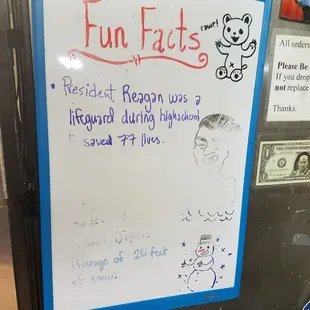 Fun Facts
rawr!
• President Reagan was a
lifeguard during highschool
+ saved 77 lives.
average of 26 feet
of snow.
All orders
Please Be
If you drop
not replace
Thanks.